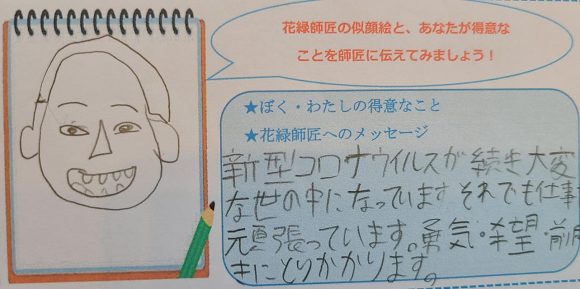 花緑師匠の似顔絵と、あなたが得意な
ことを師匠に伝えてみましょう！
★ぼく・わたしの得意なこと
★花緑師匠へのメッセージ
新型コロナウイルスが続き大変
な世の中になっています それでも仕事
頑張っています。勇気・希望・前向
きにとりかかります。